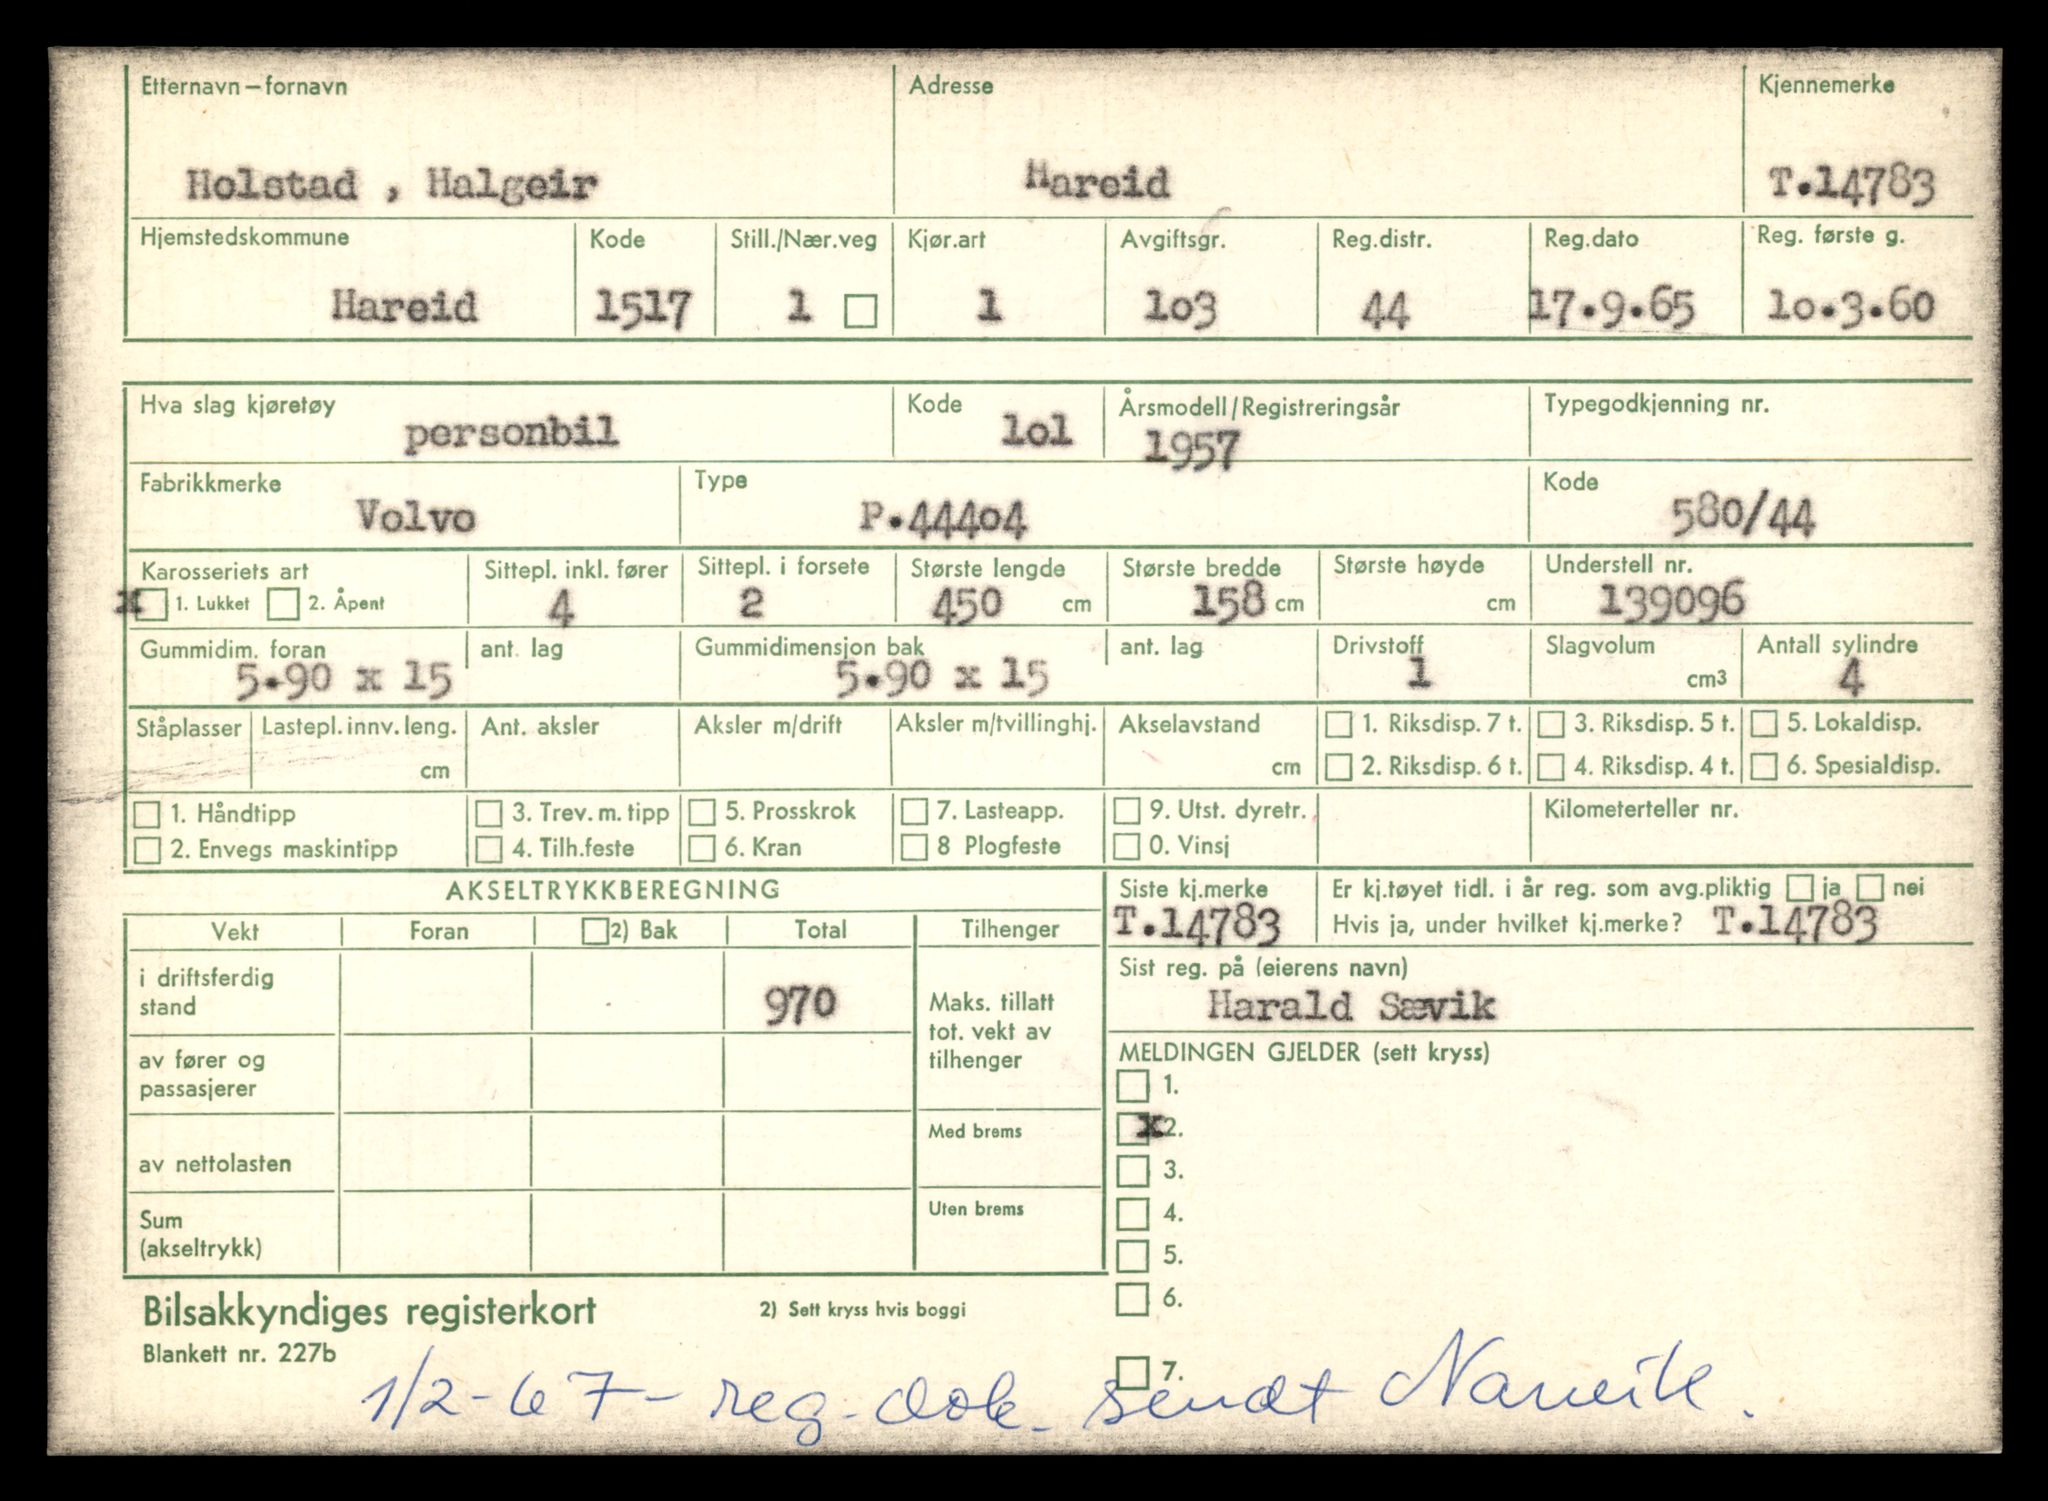 Etternavn – fornavn Adresse Kjennemerke
Holstad , Halgeir Hareid T.14783
Hjemstedskommune Kode Still./Nær.veg Kjør.art Avgiftsgr. Reg.distr. Reg.dato Reg. første g.
Hareid 1517 1 1 lo3 44 17.9.65 lo.3.60
Hva slag kjøretøy Kode Årsmodell/Registreringsår Typegodkjenning nr.
personbil lol 1957
Fabrikkmerke Type Kode
Volvo P.444o4 580/44
Karosseriets art Sittepl. inkl. fører Sittepl. i forsete Største lengde Største bredde Største høyde Understell nr.
x 1. Lukket 2. Åpent 4 2 450 cm 158 cm cm 139096
Gummidim. foran ant. lag Gummidimensjon bak ant. lag Drivstoff Slagvolum Antall sylindre
5.90 x 15 5.90 x 15 1 cm3 4
Ståplasser Lastepl. innv. leng. Ant. aksler Aksler m/drift Aksler m/tvillinghj. Akselavstand 1. Riksdisp. 7 t. 3. Riksdisp. 5 t. 5. Lokaldisp.
cm cm 2. Riksdisp. 6 t. 4. Riksdisp. 4 t. 6. Spesialdisp.
1. Håndtipp 3. Trev. m. tipp 5. Prosskrok 7. Lasteapp. 9. Utst. dyretr. Kilometerteller nr.
2. Envegs maskintipp 4. Tilh.feste 6. Kran 8 Plogfeste 0. Vinsj
AKSELTRYKKBEREGNING Siste kj.merke Er kj.tøyet tidl. i år reg. som avg.pliktig ja nei
T.14783 Hvis ja, under hvilket kj.merke? T.14783
Vekt Foran 2) Bak Total Tilhenger
Sist reg. på (eierens navn)
Harald Sævik
i driftsferdig
stand 970
Maks. tillatt
tot. vekt av
tilhenger
av fører og
passasjerer
MELDINGEN GJELDER (sett kryss)
1.
x2.
Med brems
av nettolasten
3.
Uten brems
4.
Sum
(akseltrykk)
5.
6.
Bilsakkyndiges registerkort 2) Sett kryss hvis boggi
Blankett nr. 227b
7.
1/2-67- reg.dok. sendt Narvik.